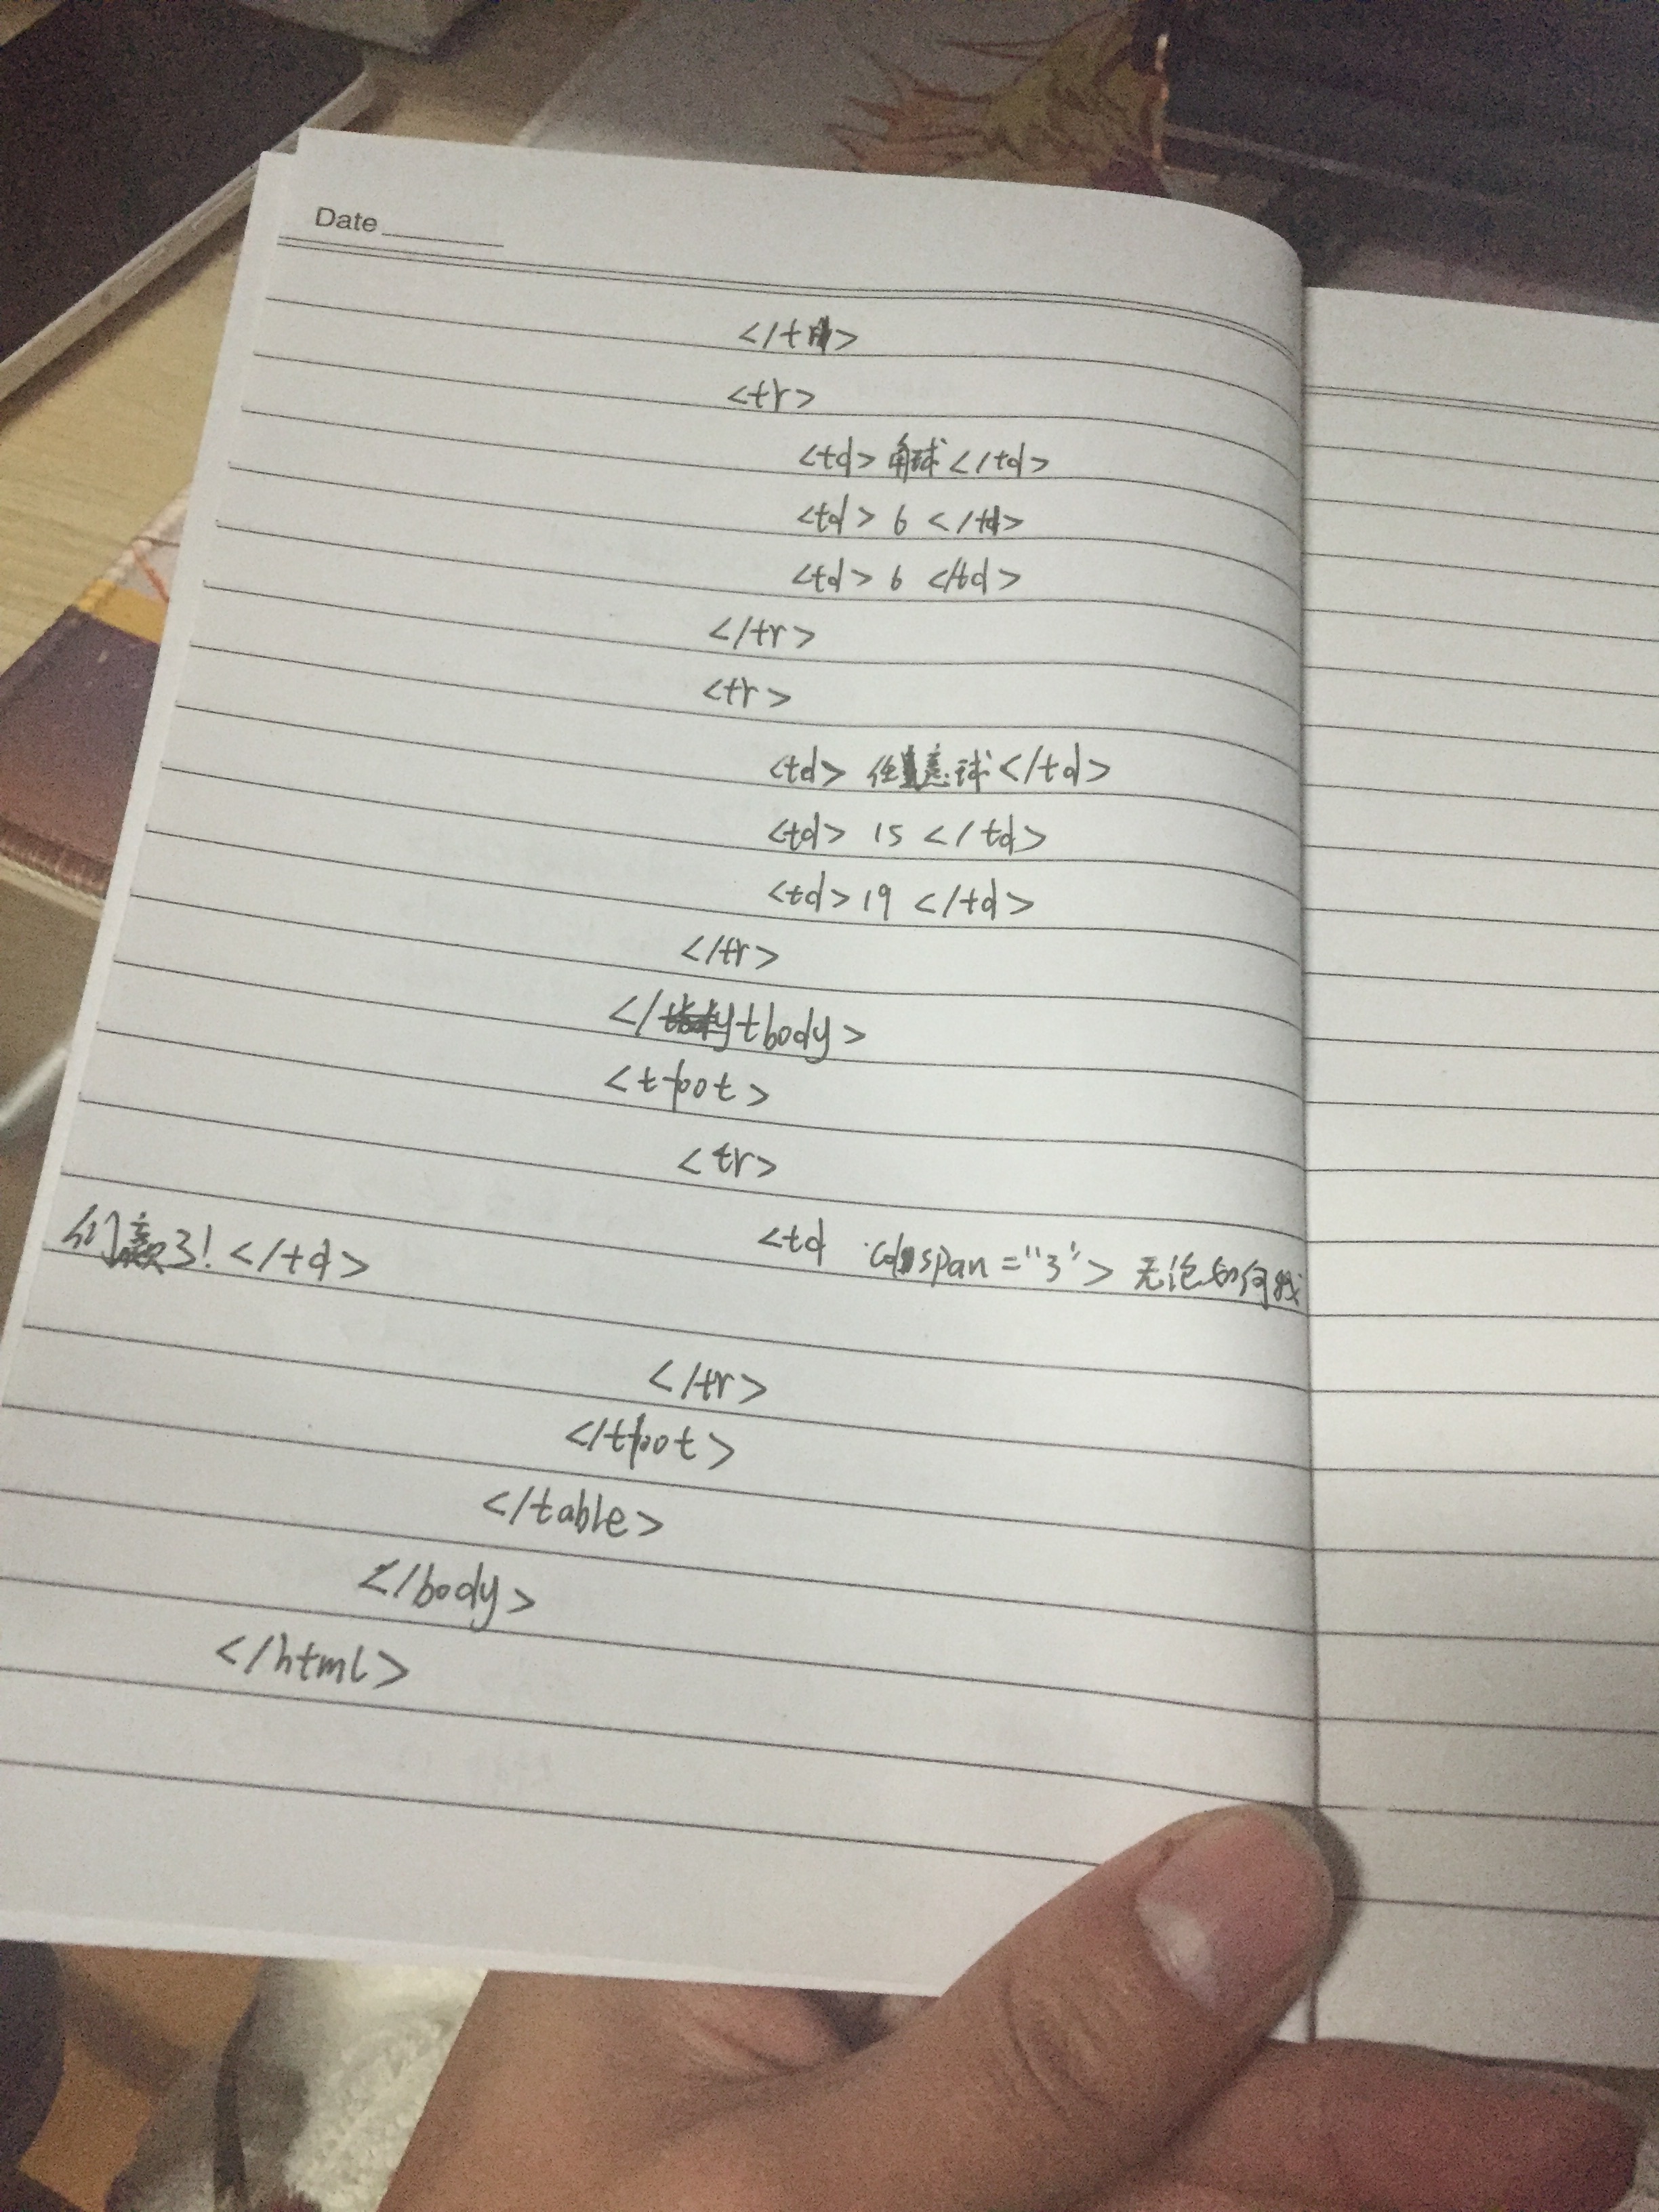 Date
</tr>
<tr>
<td>角球</td>
<td>6</td>
<td>6</td>
</tr>
<tr>
<td>任意球</td>
<td>15</td>
<td>19</td>
</tr>
</tbody>
<tfoot>
<tr>
<td colspan="3">无论如何我
们赢了!</td>
</tr>
</tfoot>
</table>
</body>
</html>